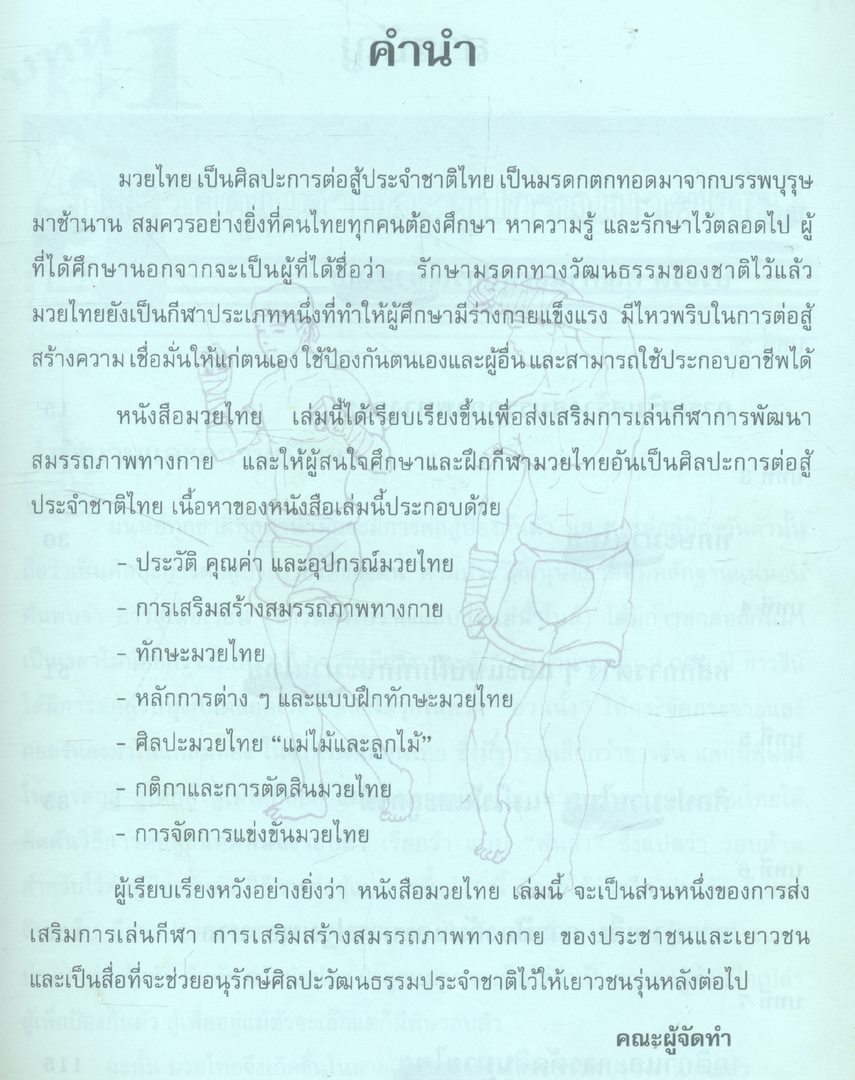 คำนำ
มวยไทย เป็นศิลปะการต่อสู้ประจำชาติไทย เป็นมรดกตกทอดมาจากบรรพบุรุษ
มาช้านาน สมควรอย่างยิ่งที่คนไทยทุกคนต้องศึกษา หาความรู้ และรักษาไว้ตลอดไป ผู้
ที่ได้ศึกษานอกจากจะเป็นผู้ที่ได้ชื่อว่า รักษามรดกทางวัฒนธรรมของชาติไว้แล้ว
มวยไทยยังเป็นกีฬาประเภทหนึ่งที่ทำให้ผู้ศึกษามีร่างกายแข็งแรง มีไหวพริบในการต่อสู้
สร้างความ เชื่อมั่นให้แก่ตนเอง ใช้ป้องกันตนเองและผู้อื่น และสามารถใช้ประกอบอาชีพได้
หนังสือมวยไทย เล่มนี้ได้เรียบเรียงขึ้นเพื่อส่งเสริมการเล่นกีฬาการพัฒนา
สมรรถภาพทางกาย และให้ผู้สนใจศึกษาและฝึกกีฬามวยไทยอันเป็นศิลปะการต่อสู้
ประจำชาติไทย เนื้อหาของหนังสือเล่มนี้ประกอบด้วย
- ประวัติ คุณค่า และอุปกรณ์มวยไทย
- การเสริมสร้างสมรรถภาพทางกาย
- ทักษะมวยไทย
- หลักการต่าง ๆ และแบบฝึกทักษะมวยไทย
- ศิลปะมวยไทย “แม่ไม้และลูกไม้”
- กติกาและการตัดสินมวยไทย
- การจัดการแข่งขันมวยไทย
ผู้เรียบเรียงหวังอย่างยิ่งว่า หนังสือมวยไทย เล่มนี้ จะเป็นส่วนหนึ่งของการส่ง
เสริมการเล่นกีฬา การเสริมสร้างสมรรถภาพทางกาย ของประชาชนและเยาวชน
และเป็นสื่อที่จะช่วยอนุรักษ์ศิลปะวัฒนธรรมประจำชาติไว้ให้เยาวชนรุ่นหลังต่อไป
คณะผู้จัดทำ